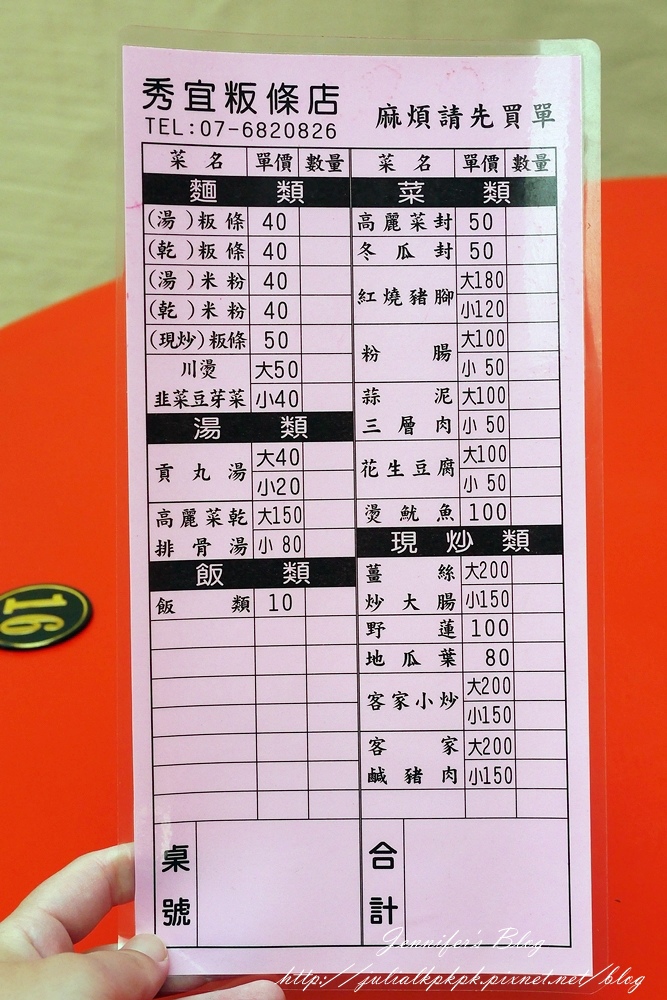 秀宜粄條店
TEL:07-6820826
麻煩請先買單
菜名 單價 數量
麵類
(湯)粄條 40
(乾)粄條 40
(湯)米粉 40
(乾)米粉 40
(現炒)粄條 50
川燙 大50
韭菜豆芽菜 小40
湯類
貢丸湯 大40
小20
高麗菜乾 大150
排骨湯 小80
飯類
飯類 10
桌號
菜名 單價 數量
菜類
高麗菜封 50
冬瓜封 50
紅燒豬腳 大180
小120
粉腸 大100
小50
蒜泥 大100
三層肉 小50
花生豆腐 大100
小50
燙魷魚 100
現炒類
薑絲 大200
炒大腸 小150
野蓮 100
地瓜葉 80
客家小炒 大200
小150
客家 大200
鹹豬肉 小150
合計
16
Jennifer's Blog
http://julialkpkpk.pixnet.net/blog